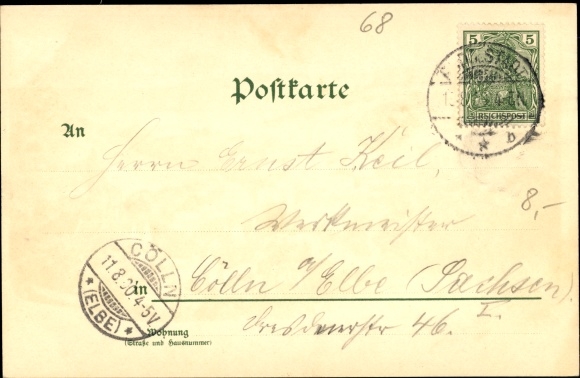 68
5 5
REICHSPOST
* * b
Postkarte
An
Herrn Ernst Keil,
8,-
Werkmeister
CÖLLN
11.8.00 4-5V.
* (ELBE) *
in Cölln a/Elbe (Sachsen).
Dresdenerstr 46. I.
Wohnung
(Straße und Hausnummer)